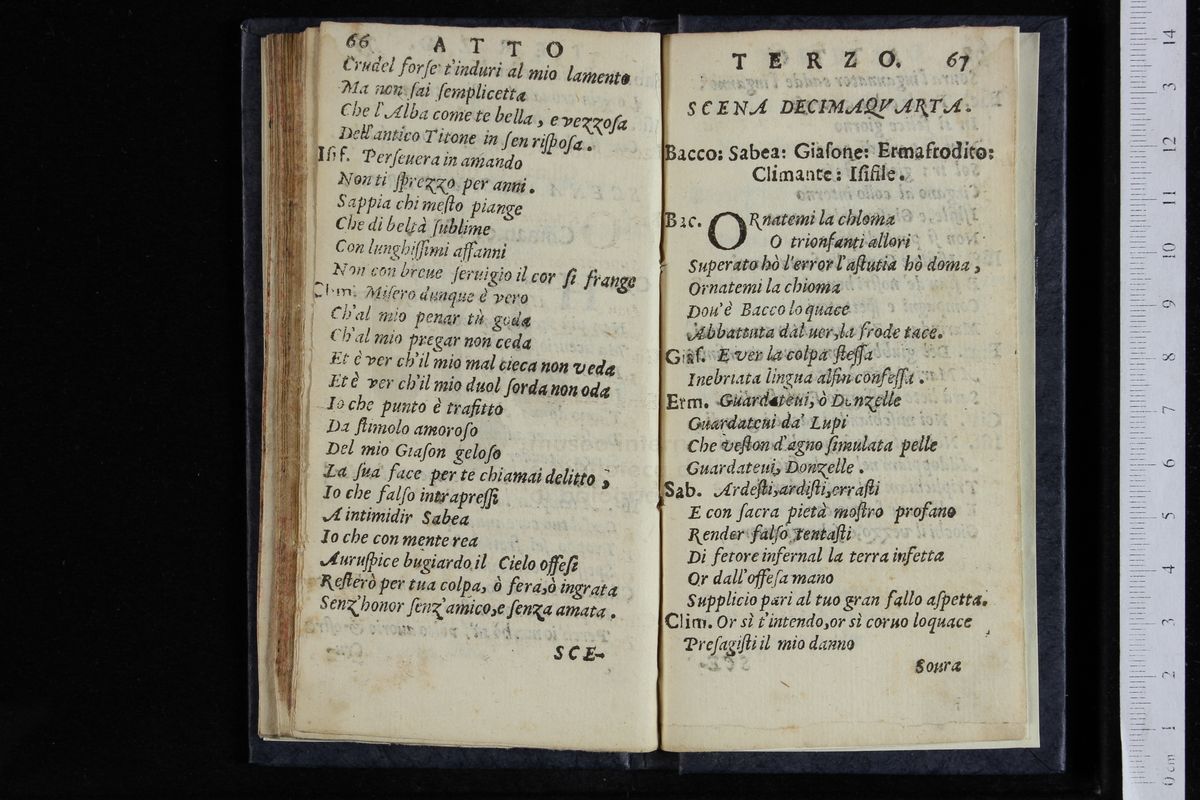 66 ATTO
Crudel forse t'induri al mio lamento
Ma non sai semplicetta
Che l'Alba come te bella, e vezzosa
Dell'antico Titone in sen risposa.
Isif. Persevera in amando
Non ti sprezzo per anni.
Sappia chi mesto piange
Che di beltà sublime
Con lunghissimi affanni
Non con breue seruigio il cor si frange
Clim. Misero dunque è vero
Ch'al mio penar tù goda
Ch'al mio pregar non ceda
Et è ver ch'il mio mal cieca non veda
Et è ver ch'il mio duol sorda non oda
Io che punto è trafitto
Da stimolo amoroso
Del mio Giason geloso
La sua face per te chiamai delitto,
Io che falso intrapressi
A intimidir Sabea
Io che con mente rea
Auruspice bugiardo il Cielo offesi
Resterò per tua colpa, ò fera, ò ingrata
Senz'honor senz'amico, e senza amata.
SCE-
TERZO. 67
SCENA DECIMAQVARTA.
Bacco: Sabea: Giasone: Ermafrodito:
Climante: Isifile.
Bac. ORnatemi la chioma
O trionfanti allori
Superato hò l'error l'astutia hò doma,
Ornatemi la chioma
Dou'è Bacco loquace
Abbattuta dal uer, la frode tace.
Gias. E ver la colpa stessa
Inebriata lingua alfin confessa.
Erm. Guardateui, ò Donzelle
Guardateui da' Lupi
Che veston d'agno simulata pelle
Guardateui, Donzelle.
Sab. Ardesti, ardisti, errasti
E con sacra pietà mostro profano
Render falso tentasti
Di fetore infernal la terra infetta
Or dall'offesa mano
Supplicio pari al tuo gran fallo aspetta.
Clim. Or sì t'intendo, or sì coruo loquace
Presagisti il mio danno
Soura
14
13
12
11
10
9
8
7
6
5
4
3
2
1
0 cm